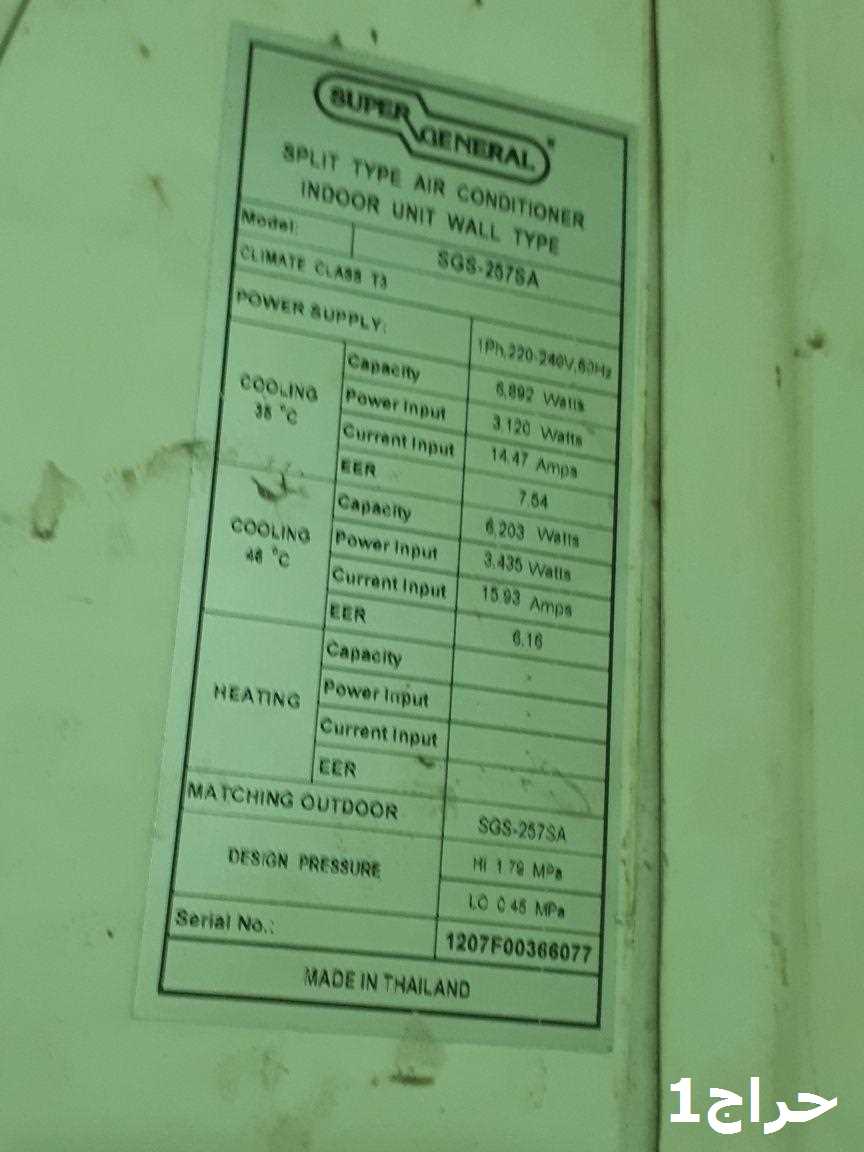 SUPER GENERAL®
SPLIT TYPE AIR CONDITIONER
INDOOR UNIT WALL TYPE
Model: SGS-257SA
CLIMATE CLASS T3
POWER SUPPLY: 1Ph,220-240V,60Hz
COOLING 35 °C
Capacity 6,892 Watts
Power Input 3,120 Watts
Current Input 14.47 Amps
EER 7.54
COOLING 46 °C
Capacity 6,203 Watts
Power Input 3,435 Watts
Current Input 15.93 Amps
EER 6.16
HEATING
Capacity
Power Input
Current Input
EER
MATCHING OUTDOOR SGS-257SA
DESIGN PRESSURE HI 1.79 MPa
LO 0.45 MPa
Serial No.: 1207F00366077
MADE IN THAILAND
حراج1